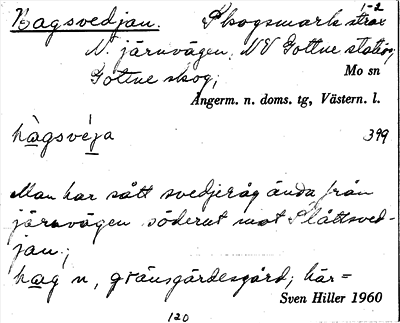 Hagsvedjan. Skogsmark strax 1-2
N. järnvägen, NV Gottne station,
Gottne skog, Mo sn
Ångerm. n. doms. tg, Västern. l.
hàgsvéja 399
Man har sått svedjeråg ända från
järnvägen söderut mot Slåttsved-
jan;
hag n, gränsgärdesgård; här=
Sven Hiller 1960
120